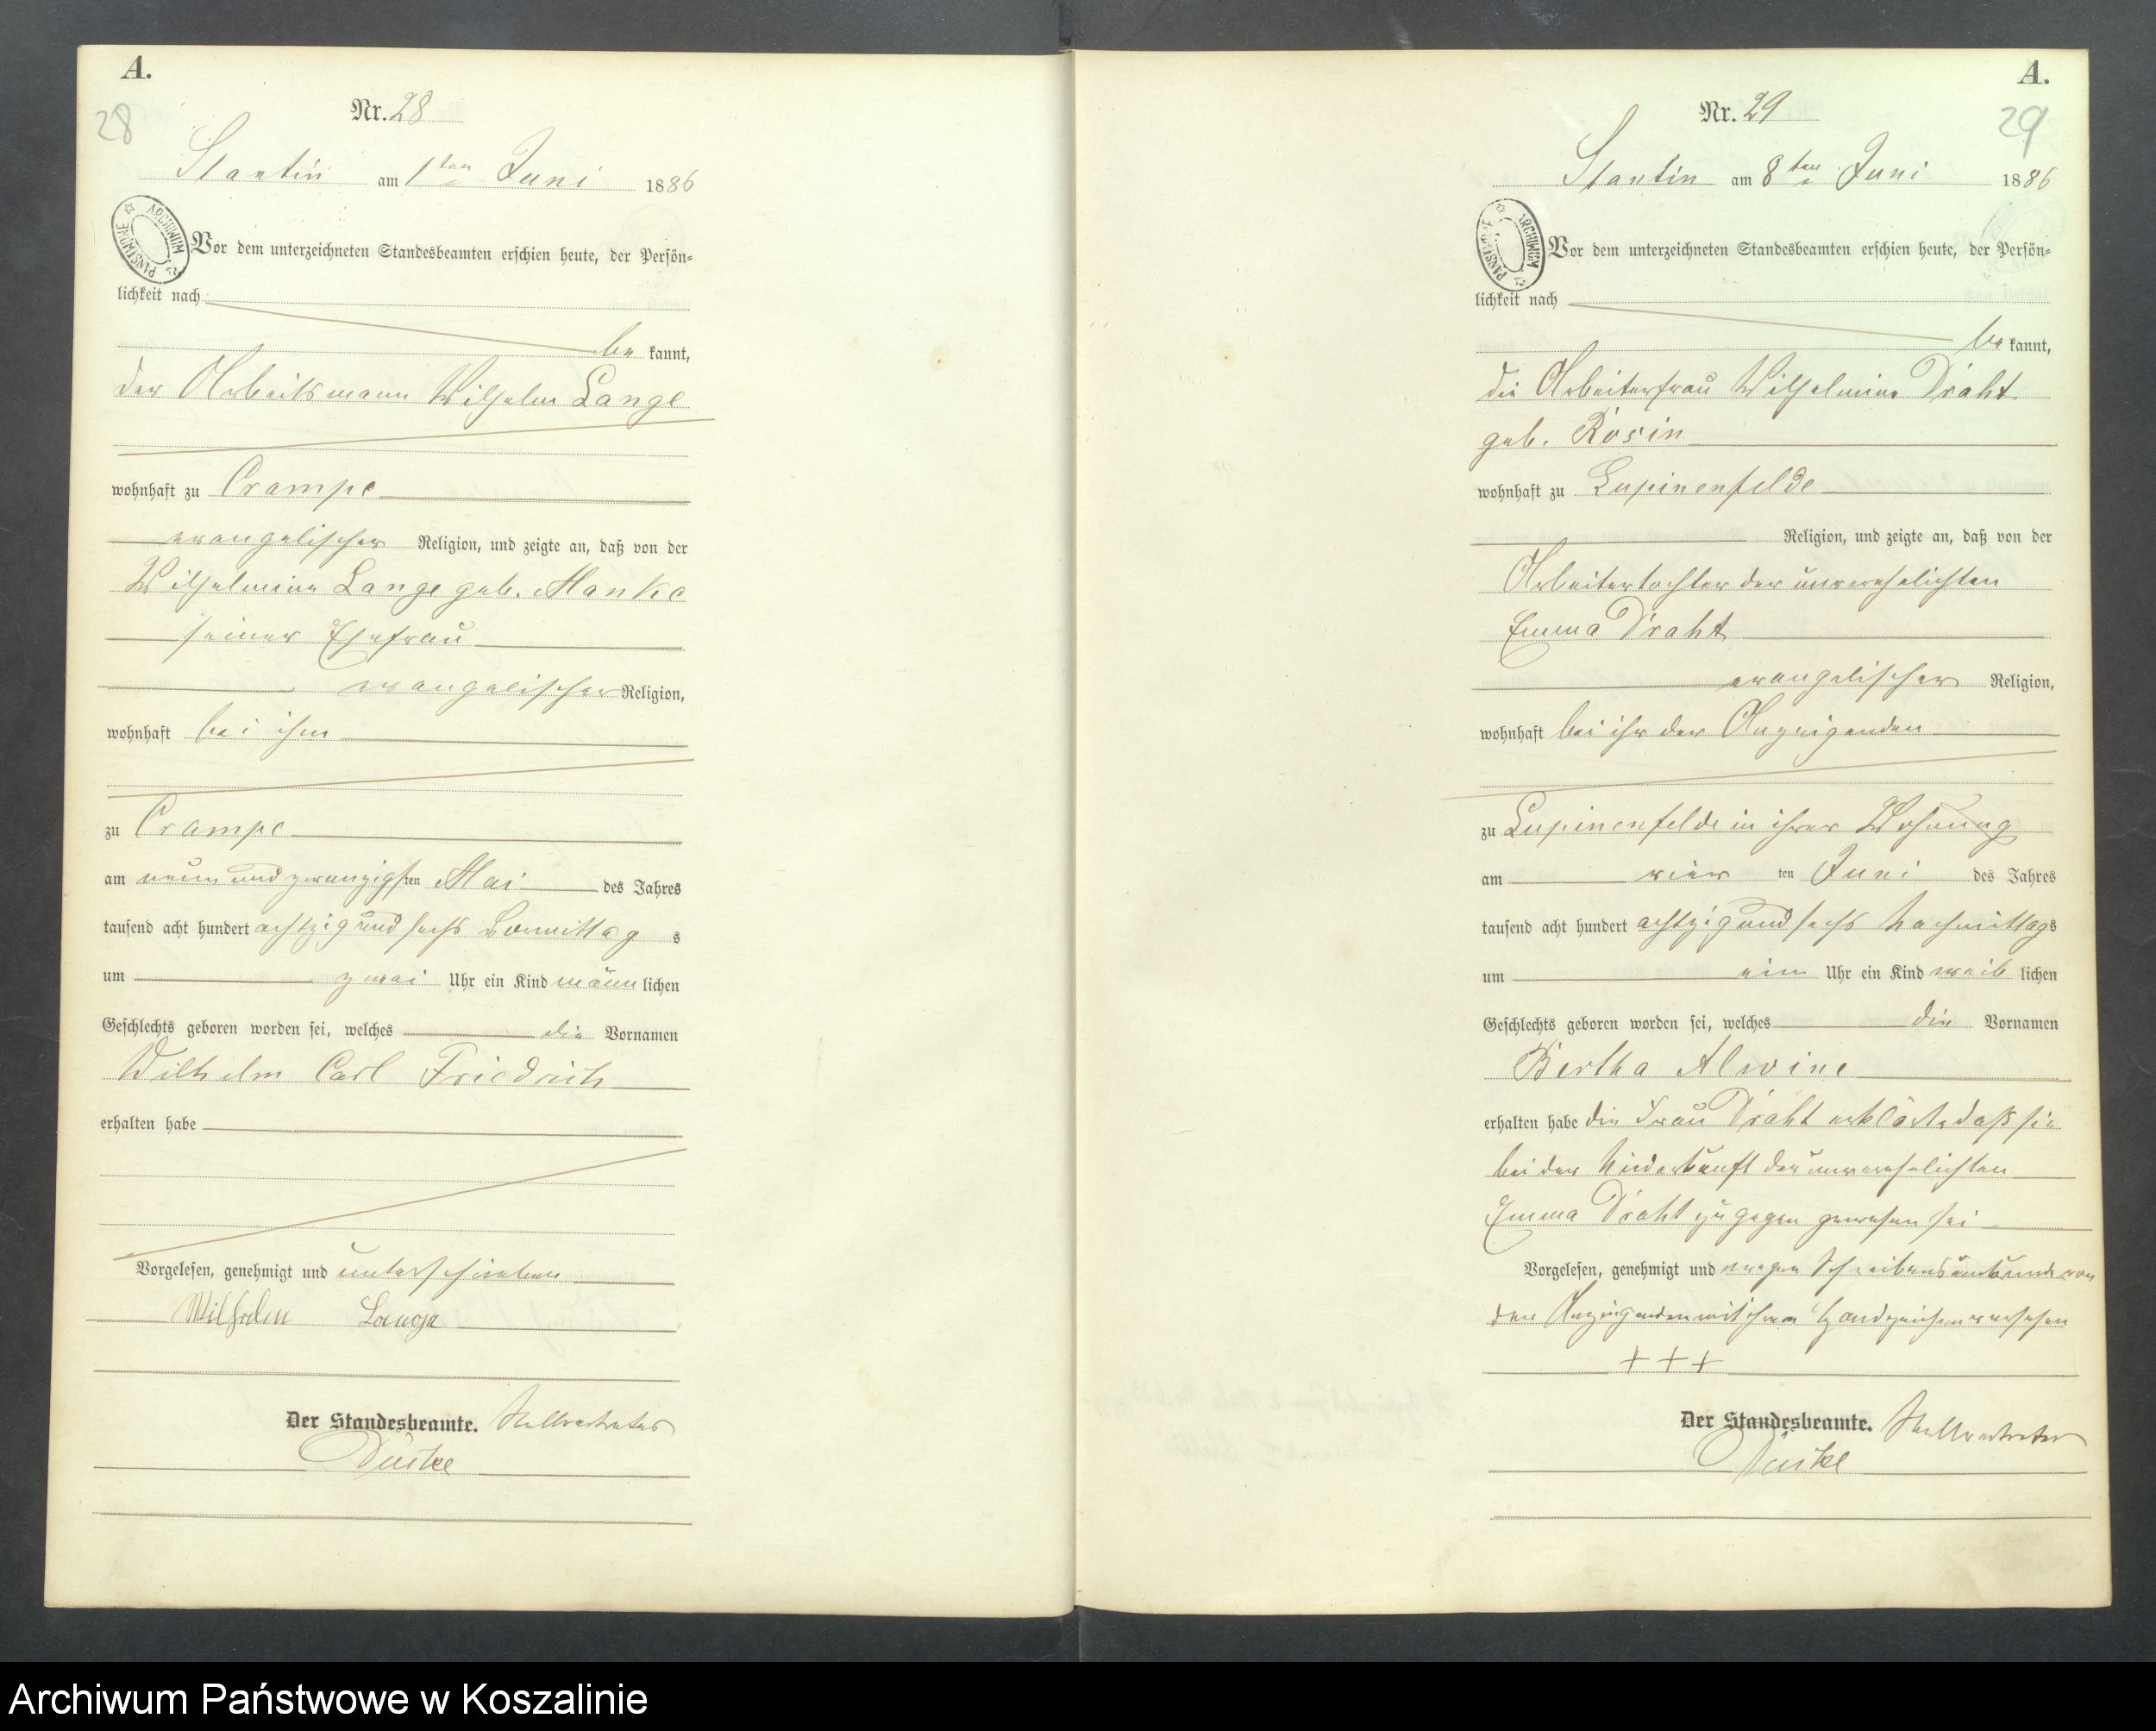 A.
28
Nr. 28
Stantin am 1ten Juni 1886
ARCHIWUM PAŃSTWOWE
Vor dem unterzeichneten Standesbeamten erschien heute, der Persön-
lichkeit nach
be kannt,
der Arbeitsmann Wilhelm Lange
wohnhaft zu Crampe
evangelischer Religion, und zeigte an, daß von der
Wilhelmine Lange geb. Manke
seiner Ehefrau
evangelischer Religion,
wohnhaft bei ihm
zu Crampe
am neun und zwanzigsten Mai des Jahres
tausend acht hundert achtzig und sechs Vormittag s
um zwei Uhr ein Kind männ lichen
Geschlechts geboren worden sei, welches die Vornamen
Wilhelm Carl Friedrich
erhalten habe
Vorgelesen, genehmigt und unterschrieben
Wilhelm Lange
Der Standesbeamte. Stellvertreter
A.
29
Nr. 29
Stantin am 8ten Juni 1886
ARCHIWUM PAŃSTWOWE
Vor dem unterzeichneten Standesbeamten erschien heute, der Persön-
lichkeit nach
be kannt,
die Arbeiterfrau Wilhelmine Draht
geb. Rosin
wohnhaft zu Lupinenfelde
Religion, und zeigte an, daß von der
Arbeitertochter der unverehelichten
Emma Draht
evangelischer Religion,
wohnhaft bei ihr der Anzeigenden
zu Lupinenfelde in ihrer Wohnung
am vier ten Juni des Jahres
tausend acht hundert achtzig und sechs Nachmittags
um ein Uhr ein Kind weib lichen
Geschlechts geboren worden sei, welches die Vornamen
Bertha Alwine
erhalten habe die Frau Draht erklärte daß sie
bei der Niederkunft der unverehelichten
Emma Draht zugegen gewesen sei
Vorgelesen, genehmigt und wegen Schreibensunkunde von
der Anzeigenden mit ihrem Handzeichen versehen
+++
Der Standesbeamte. Stellvertreter
Archiwum Państwowe w Koszalinie